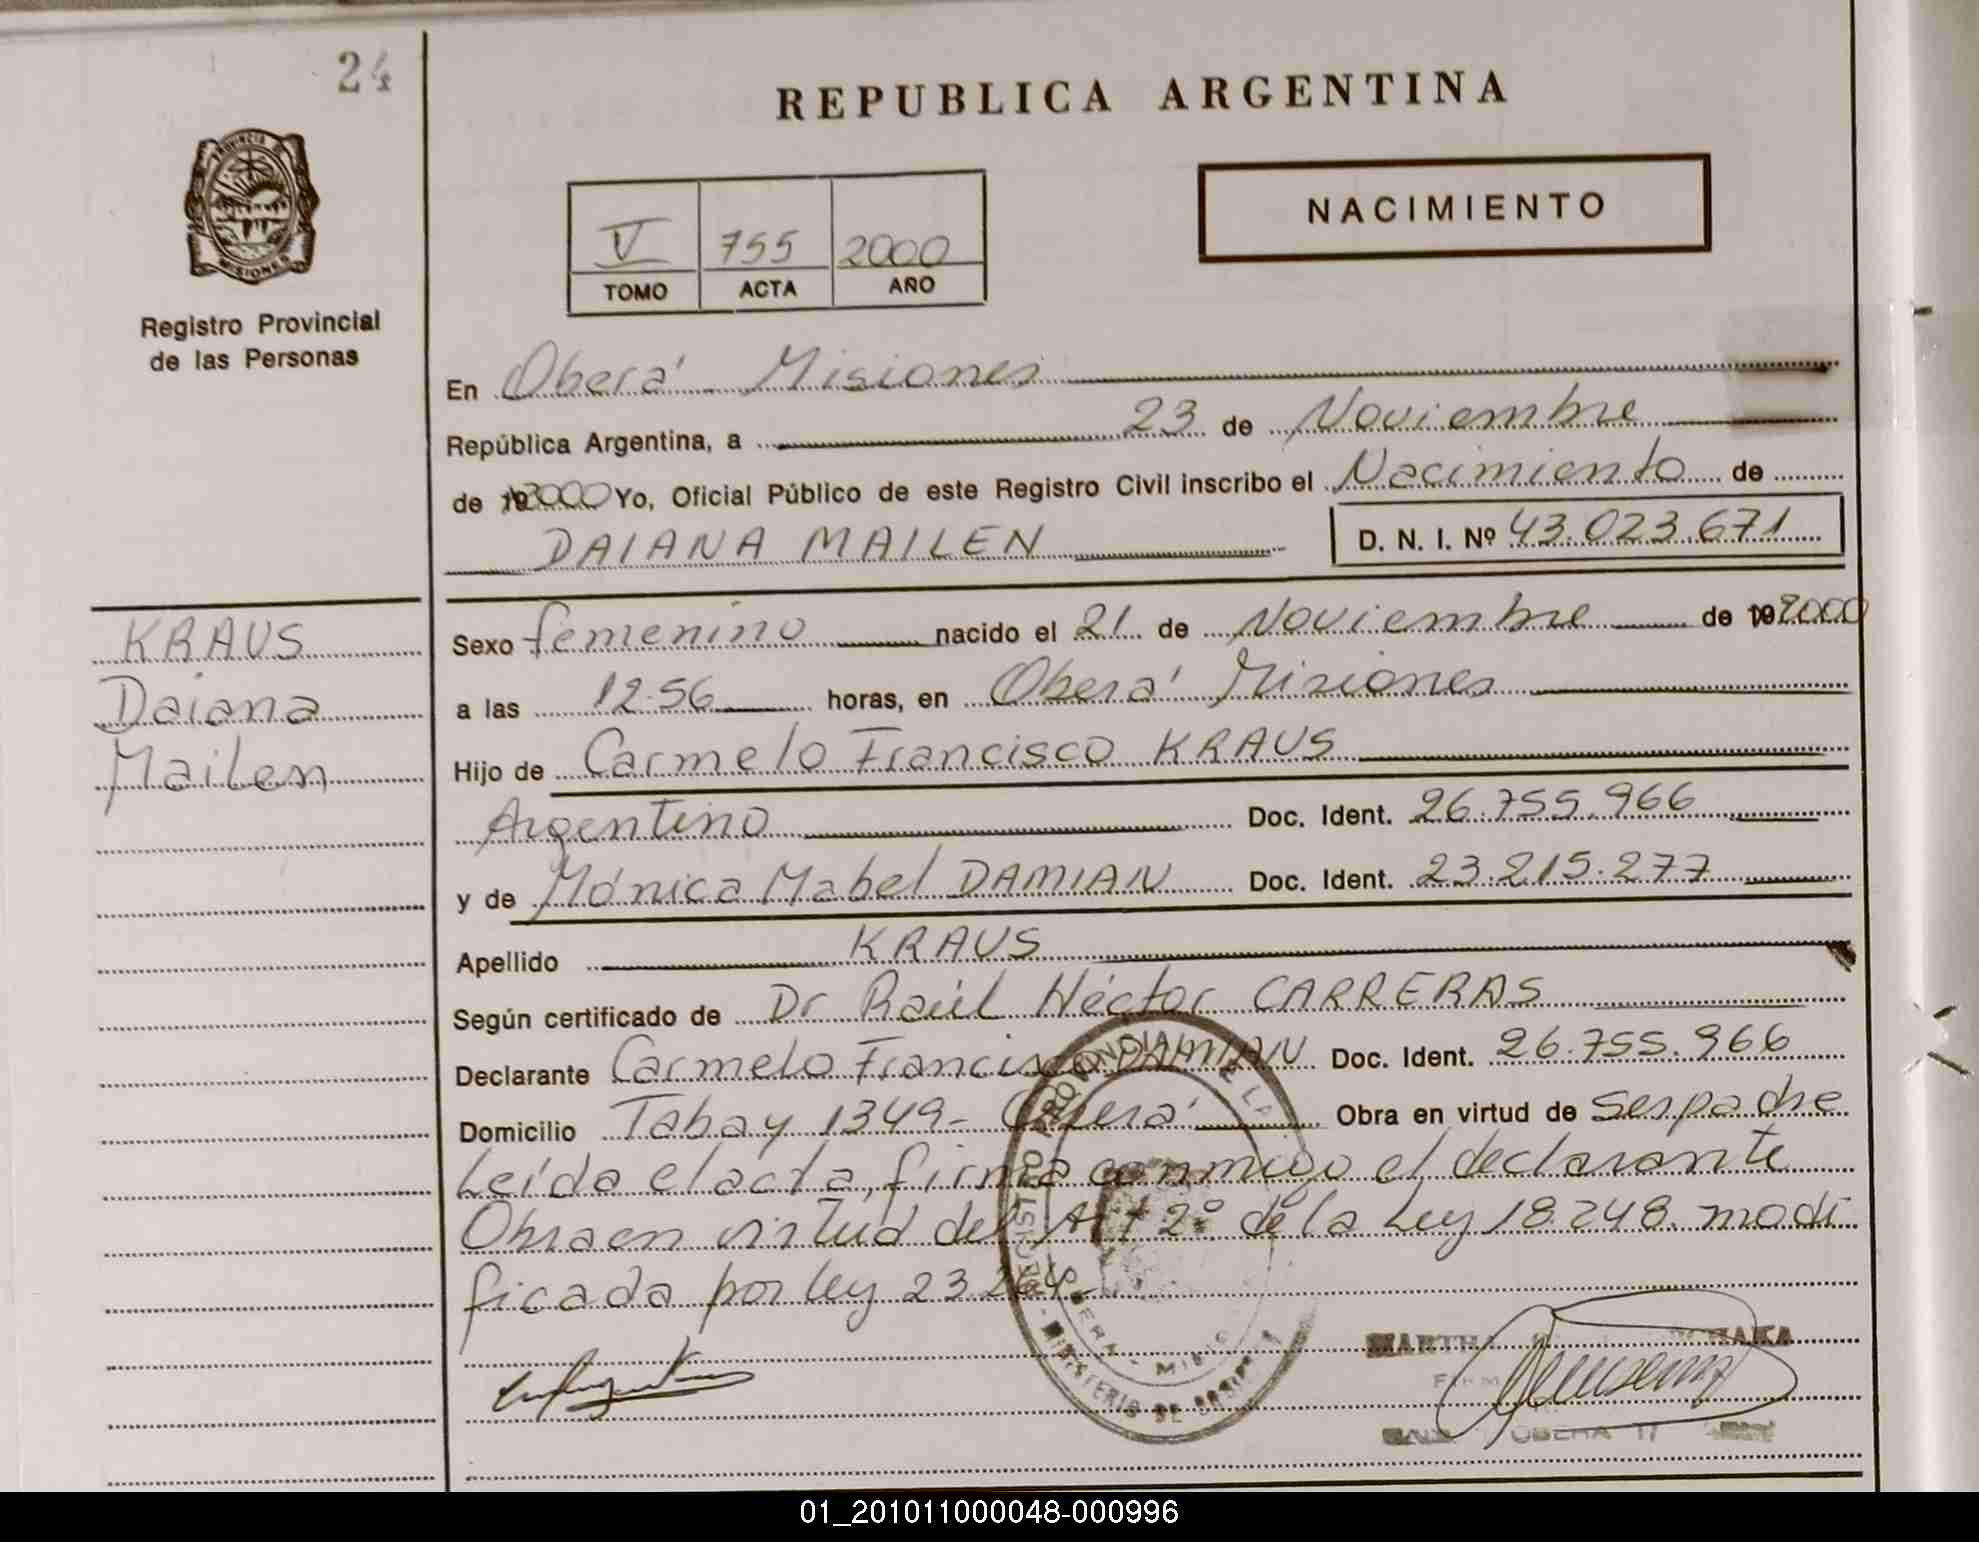 24
REPUBLICA ARGENTINA
PROVINCIA DE
MISIONES
NACIMIENTO
V 755 2000
TOMO ACTA AÑO
Registro Provincial
de las Personas
En Oberá - Misiones
República Argentina, a 23 de Noviembre
de 192000 Yo, Oficial Público de este Registro Civil inscribo el Nacimiento de
DAIANA MAILEN D. N. I. Nº 43.023.671
KRAUS
Daiana
Mailen
Sexo femenino nacido el 21 de Noviembre de 192000
a las 12.56 horas, en Oberá Misiones
Hijo de Carmelo Francisco KRAUS
Argentino Doc. Ident. 26.755.966
y de Mónica Mabel DAMIAN Doc. Ident. 23.215.277
Apellido KRAUS
Según certificado de Dr Raúl Héctor CARRERAS
Declarante Carmelo Francisco DAMIAN Doc. Ident. 26.755.966
Domicilio Tabay 1349 - Oberá Obra en virtud de Ser padre
Leída el acta, firma conmigo el declarante
Obra en virtud del Art 2º de la Ley 18.248. modi
ficada por ley 23.264.
REGISTRO PROVINCIAL DE LA
MINISTERIO DE
MARTHA
OBERA
01_201011000048-000996